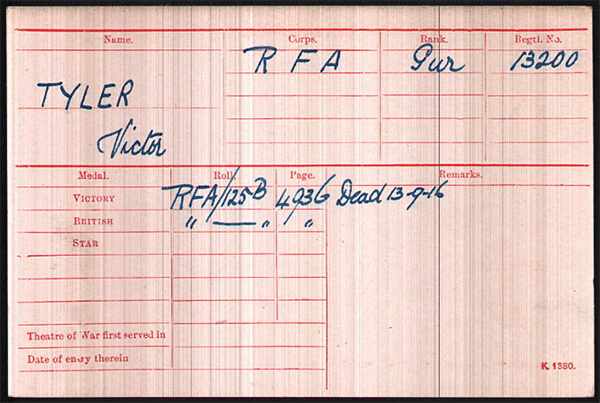 Name. Corps. Rank. Regtl. No.
R F A Gnr 13200
TYLER
Victor
Medal. Roll. Page. Remarks.
VICTORY RFA/125B 4936 Dead 13-9-16
BRITISH " — " "
STAR
Theatre of War first served in
Date of entry therein
K 1380.